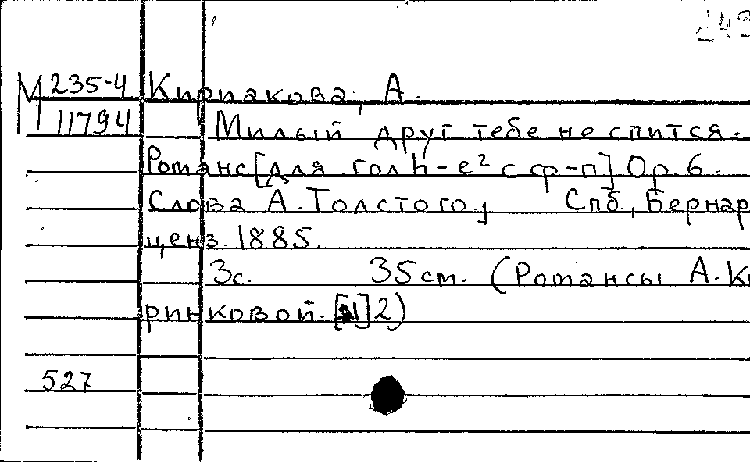 243
М 235-4 Кирпакова, А.
11794 Милый друг тебе не спится.
Романс [для гол h-e² с ф-п] Ор. 6.
Слова А. Толстого, Спб, Бернар
ценз. 1885.
3с. 35 см. (Романсы А. Ки
ринковой. [1] 2)
527